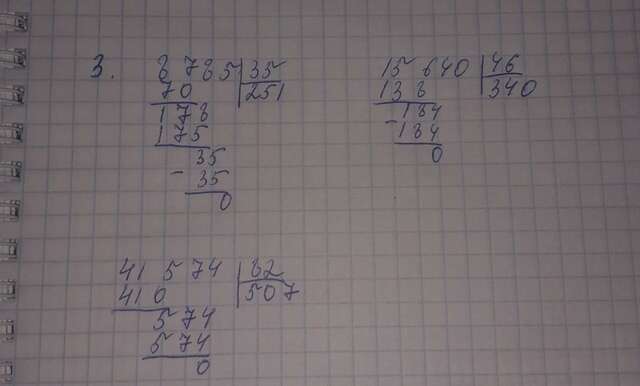 3. 8 785 | 35
70 | 251
178
175
35
- 35
0
15 640 | 46
138 | 340
184
- 184
0
41 574 | 82
410 | 507
574
574
0